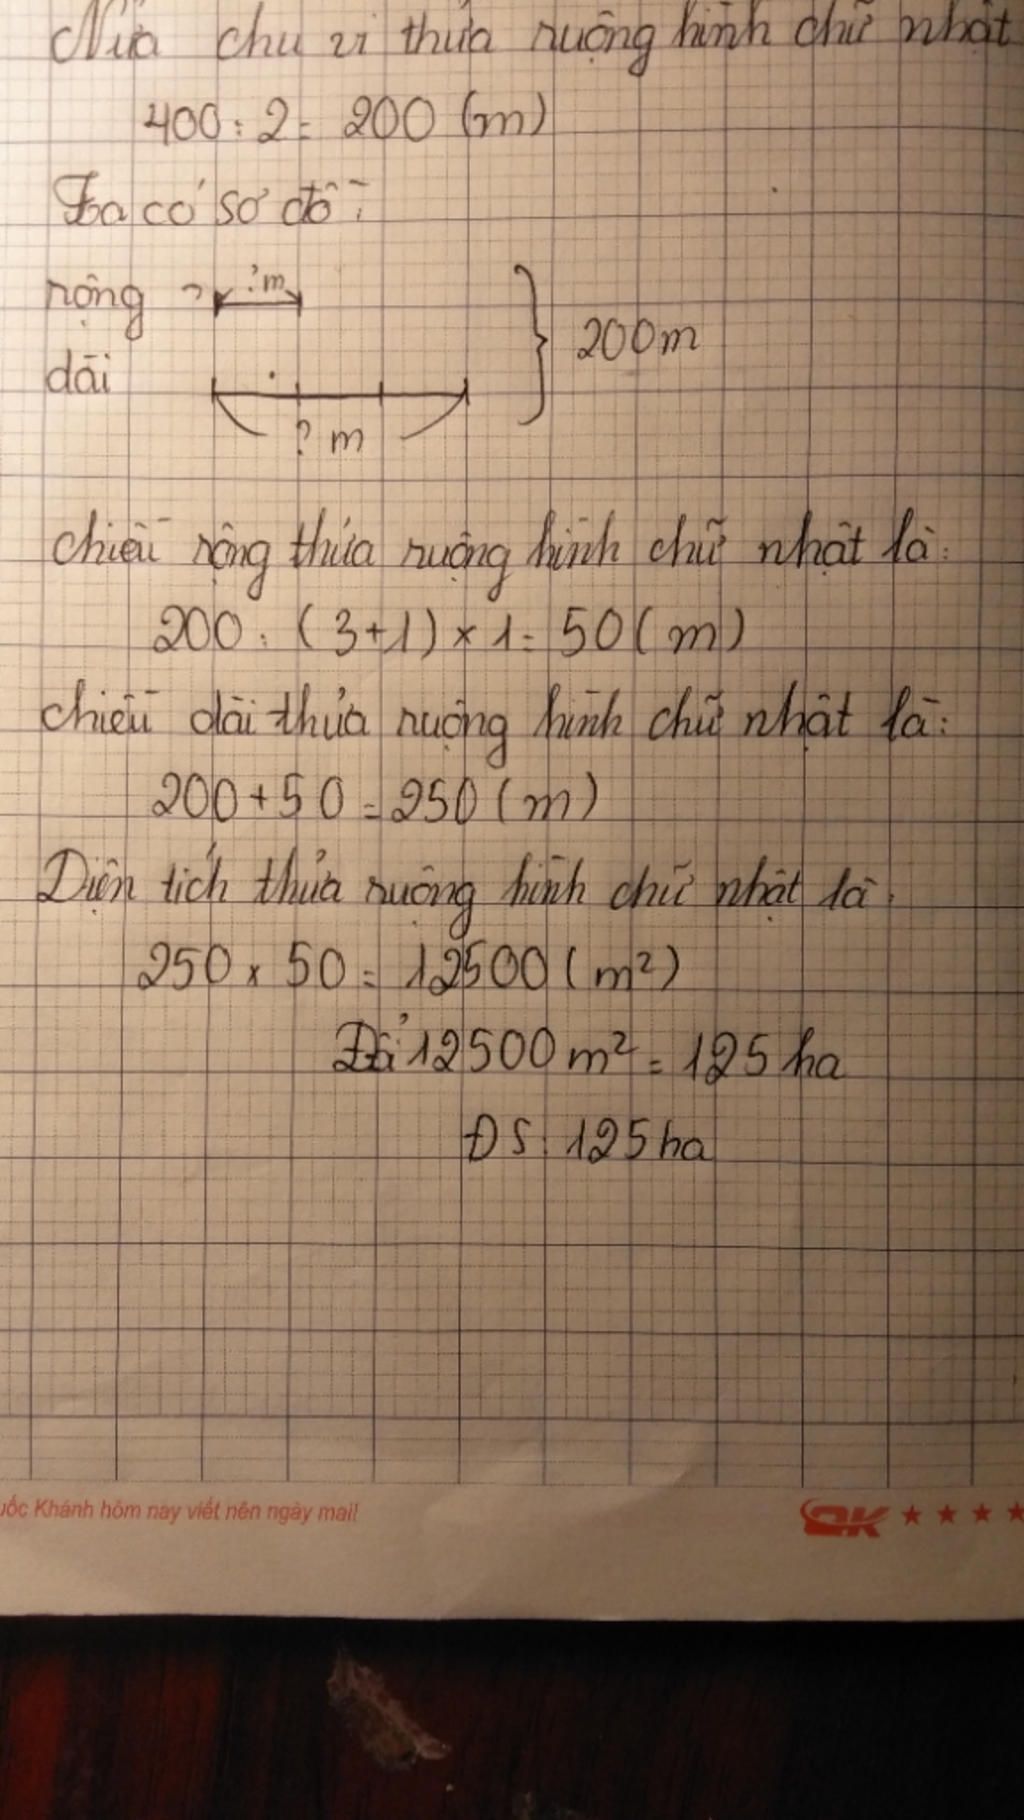 Nửa chu vi thửa ruộng hình chữ nhật
400 : 2 = 200 (m)
Ta có sơ đồ :
rộng ?m
200m
dài
? m
chiều rộng thửa ruộng hình chữ nhật là :
200 : (3+1) × 1 = 50 (m)
chiều dài thửa ruộng hình chữ nhật là :
200 + 50 = 250 (m)
Diện tích thửa ruộng hình chữ nhật là :
250 × 50 = 12500 (m²)
Đổi 12500 m² = 125 ha
ĐS : 125 ha
uốc Khánh hôm nay viết nên ngày mai!
QK ★ ★ ★ ★